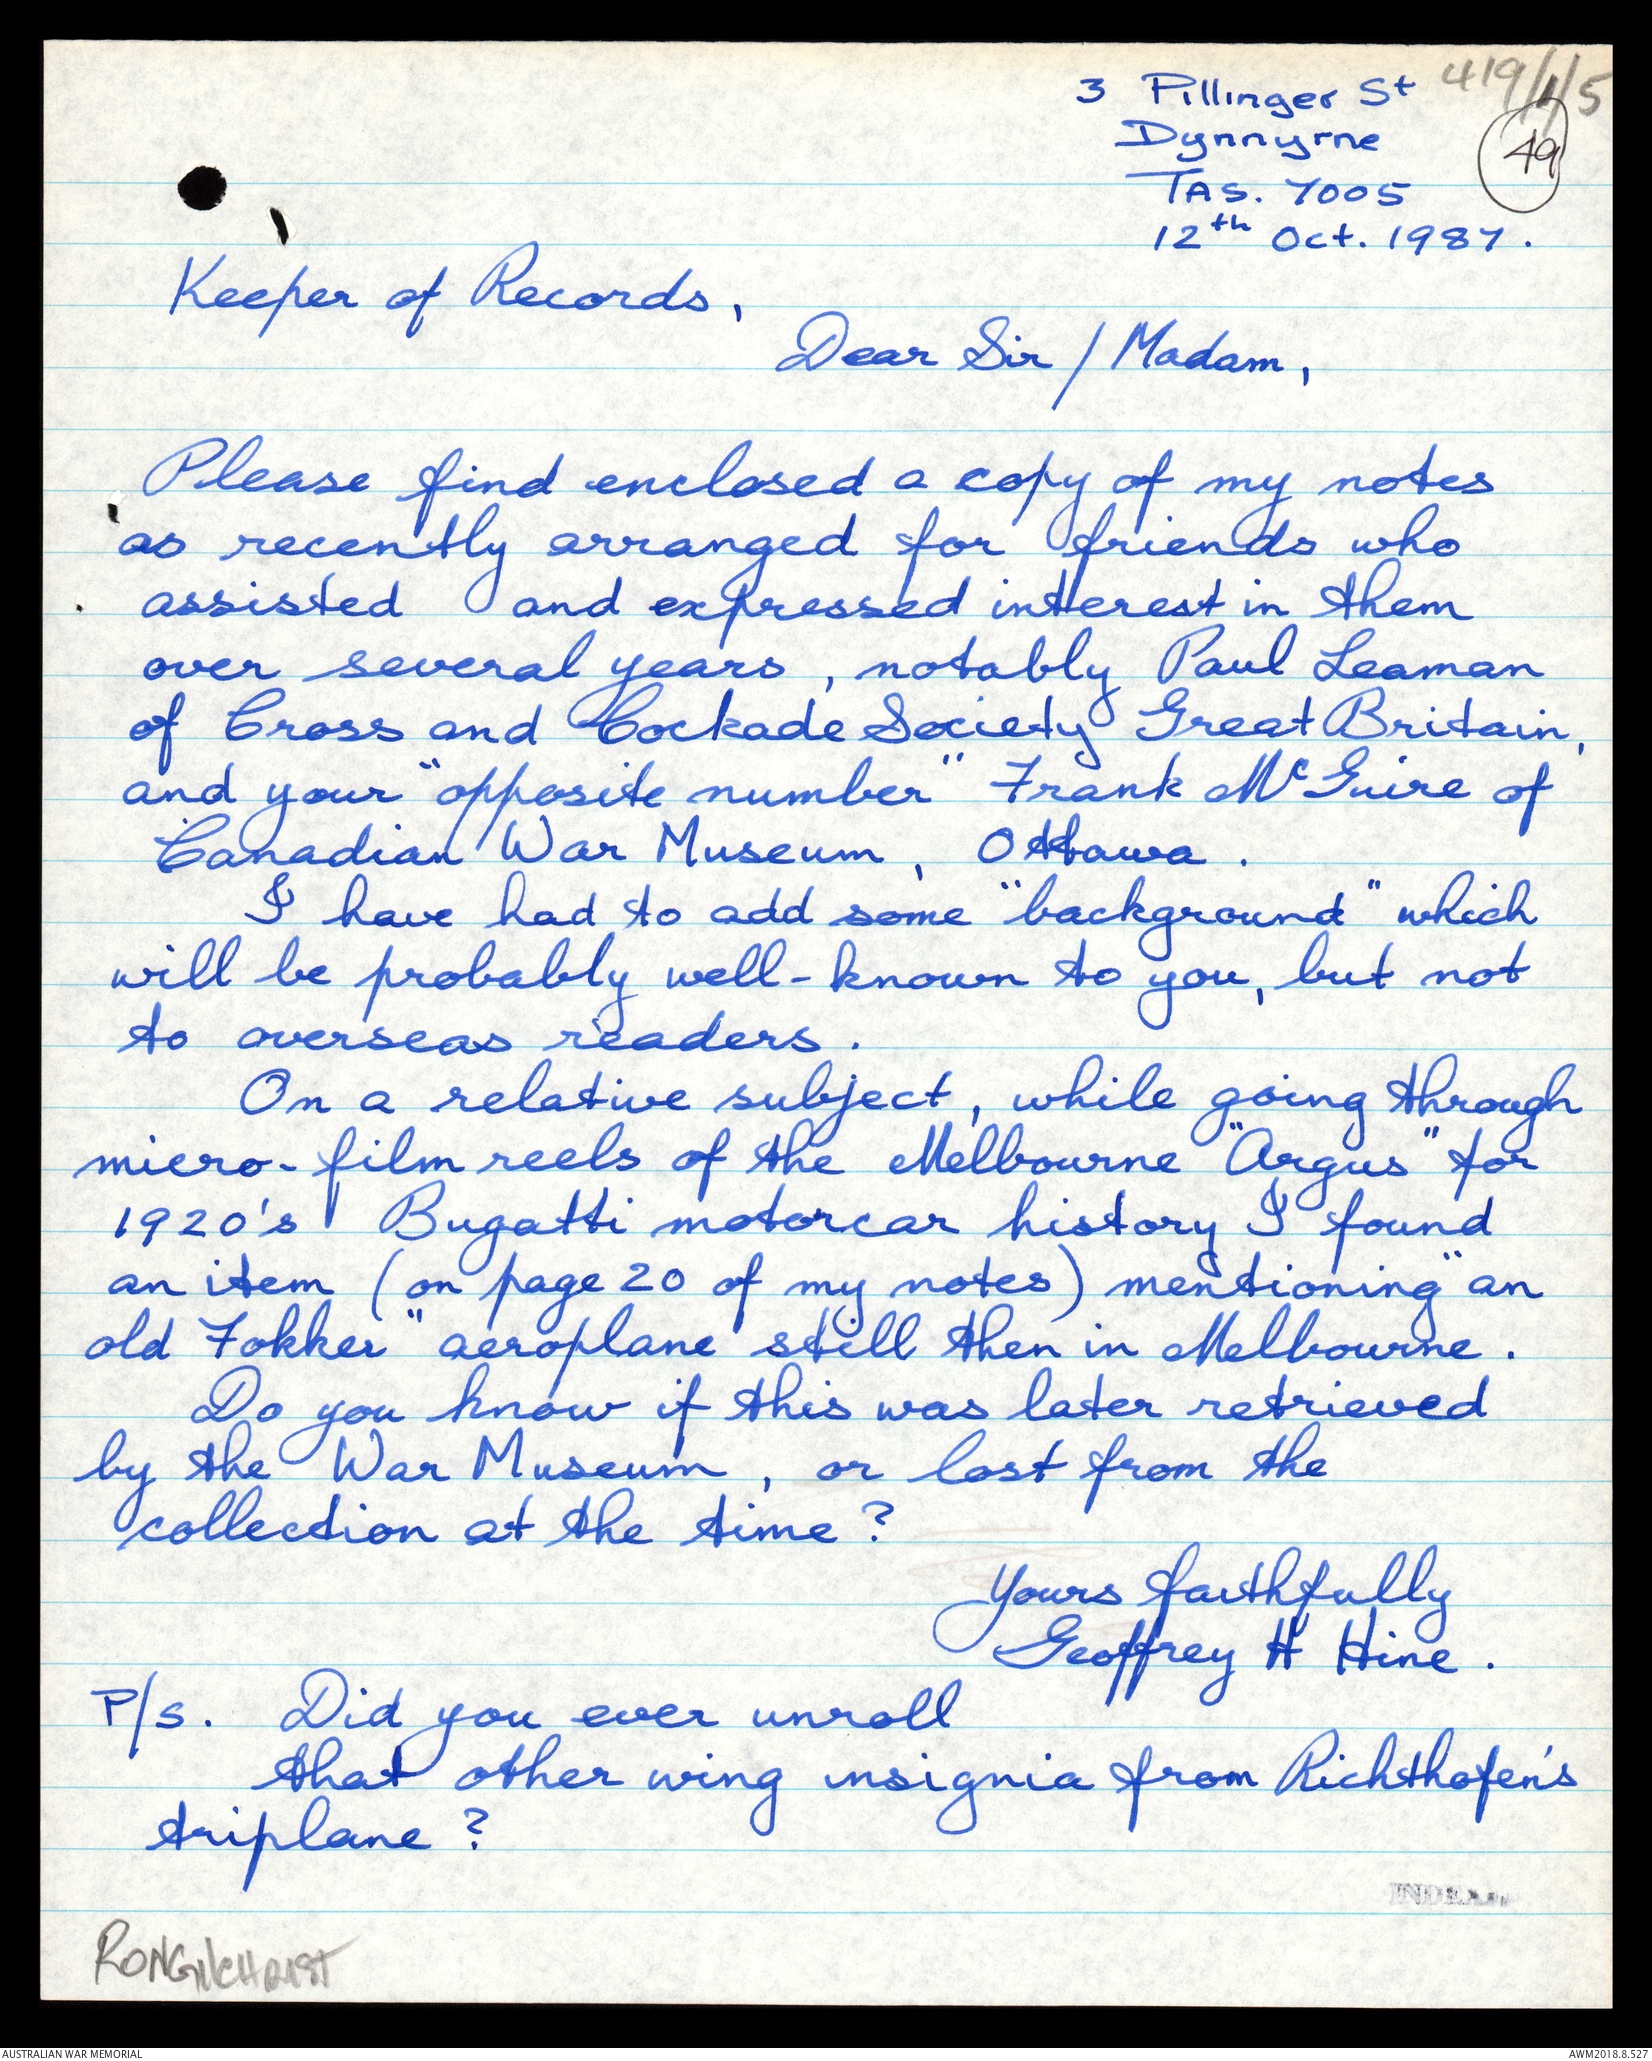 419/1/5
49
3 Pillinger St
Dynnyrne
TAS. 7005
12th Oct. 1987.
Keeper of Records,
Dear Sir / Madam,
Please find enclosed a copy of my notes
as recently arranged for friends who
assisted and expressed interest in them
over several years, notably Paul Leaman
of Cross and Cockade Society Great Britain,
and your "opposite number" Frank McGuire of
Canadian War Museum, Ottawa.
I have had to add some "background" which
will be probably well-known to you, but not
to overseas readers.
On a relative subject, while going through
micro-film reels of the Melbourne "Argus" for
1920's Bugatti motorcar history I found
an item (on page 20 of my notes) mentioning "an
old Fokker" aeroplane still then in Melbourne.
Do you know if this was later retrieved
by the War Museum, or lost from the
collection at the time?
Yours faithfully
Geoffrey H Hine.
P/s. Did you ever unroll
that other wing insignia from Richthofen's
triplane?
RON GILCHRIST
AUSTRALIAN WAR MEMORIAL
AWM2018.8.527